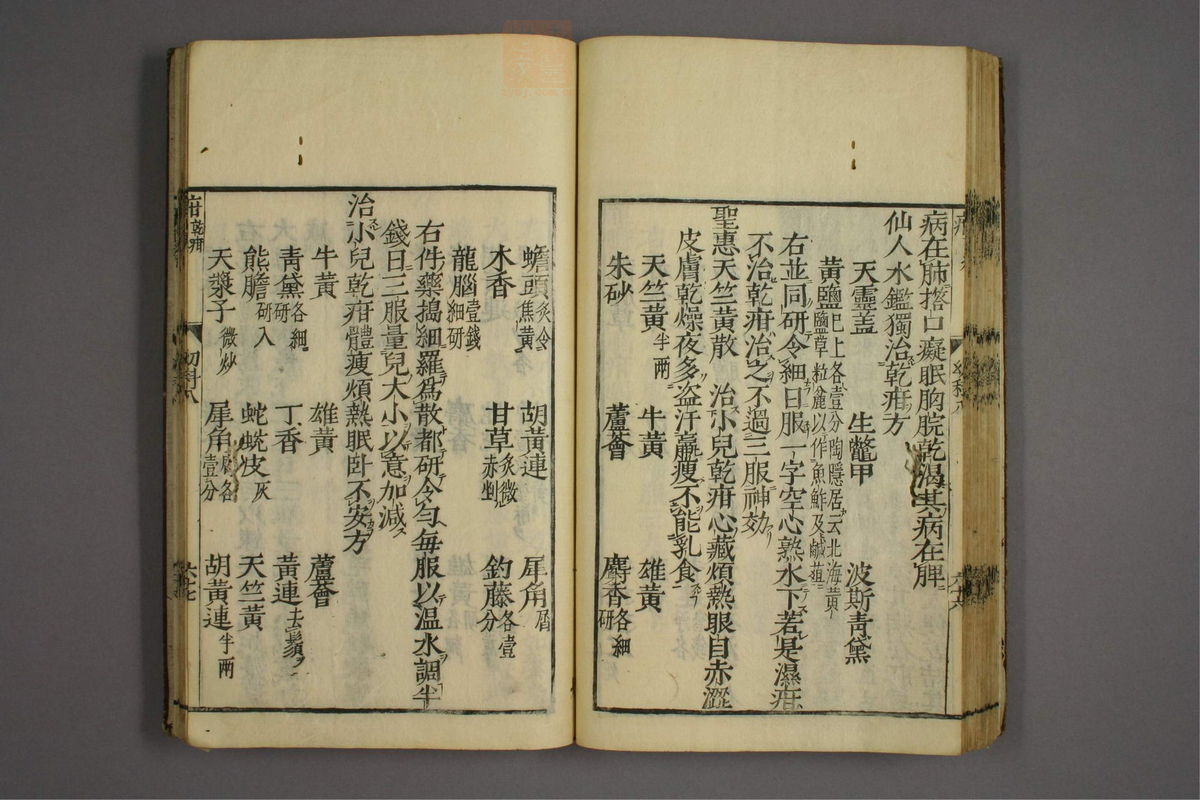 病在肺㨍口癡眠胸脘乾渴其病在脾
仙人水鑑獨治乾疳方
天靈蓋 生鼈甲 波斯青黛
黃鹽巳上各壹分陶隱居云北海黃
鹽草粒麄以作魚鮓及鹹葅
右並同研令細日服一字空心熟水下若是濕疳
不治乾疳治之不過三服神効
聖惠天竺黃散 治小兒乾疳心藏煩熱眼目赤澁
皮膚乾燥夜多盗汗羸瘦不能乳食
天竺黃半兩 牛黃 雄黃
朱砂 蘆薈 麝香各細研
蟾頭炙令焦黃 胡黃連 犀角屑
木香 甘草炙微赤剉 釣藤各壹分
龍腦壹錢細研
右件藥搗細羅爲散都研令勻每服以温水調半
錢日三服量兒大小以意加減
治小兒乾疳體瘦煩熱眠卧不安方
牛黃 雄黃 蘆薈
青黛各細研 丁香 黃連去鬚
熊膽研入 蛇蛻皮灰 天竺黃
天漿子微炒 犀角屑各壹分 胡黃連半兩
乾疳
幼科八
六十七
幼科八
六十六